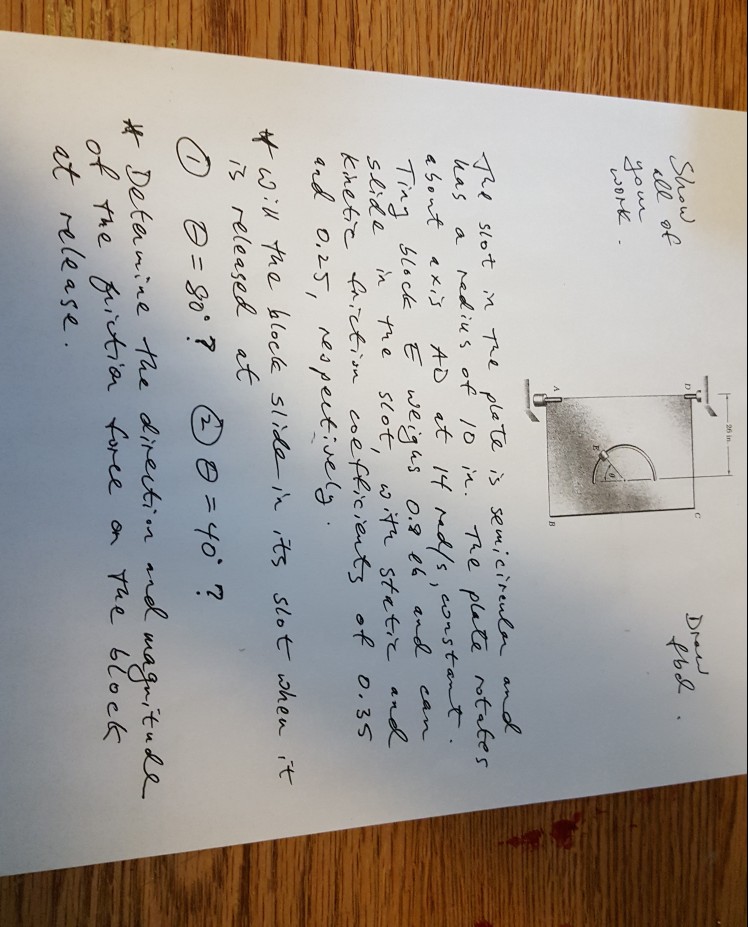 Show
all of
your
work.
Draw
fbd.
26 in.
D
C
E
θ
A
B
The slot in the plate is semicircular and
has a radius of 10 in. The plate rotates
about axis AD at 14 rad/s, constant.
Tiny block E weighs 0.8 lb and can
slide in the slot, with static and
kinetic friction coefficients of 0.35
and 0.25, respectively.
* Will the block slide in its slot when it
is released at
① θ = 80°? ② θ = 40°?
* Determine the direction and magnitude
of the friction force on the block
at release.